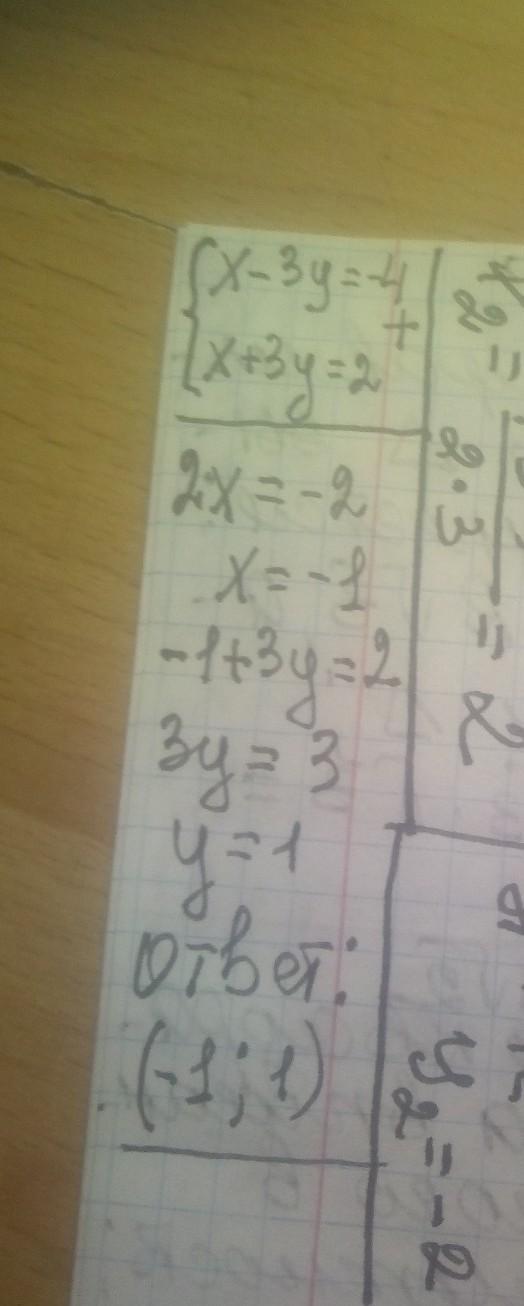 x-3y=-4
+
x+3y=2
2x=-2
x=-1
-1+3y=2
3y=3
y=1
Ответ:
(-1; 1)
2·3
= 2
y₂=-2